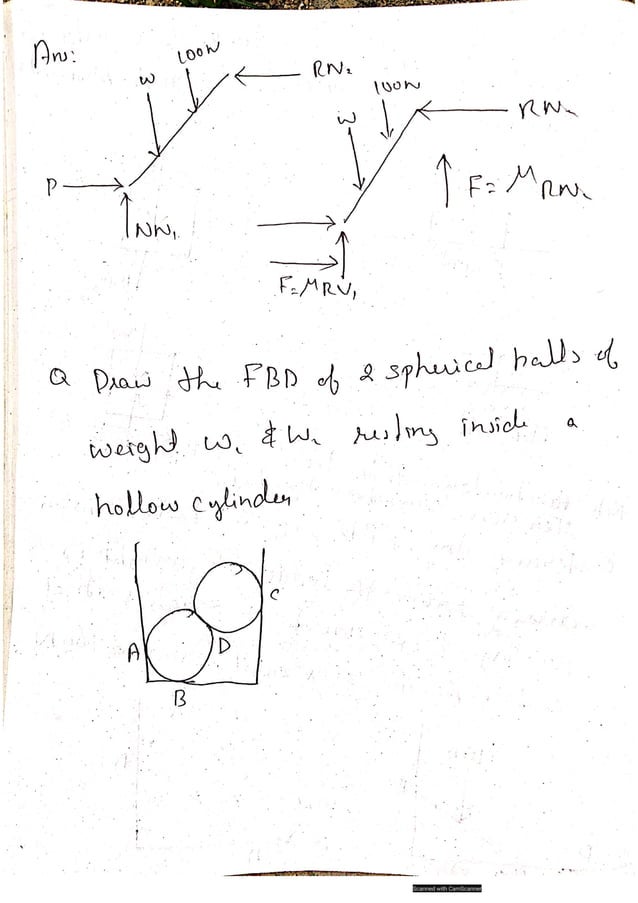 Ans:
100N
W
RN₂
P
NN₁
100N
W
RN₂
F = μRN₂
F = μRN₁
Q Draw the FBD of 2 spherical balls of
weight W₁ & W₂ resting inside a
hollow cylinder
C
A
D
B
Scanned with CamScanner